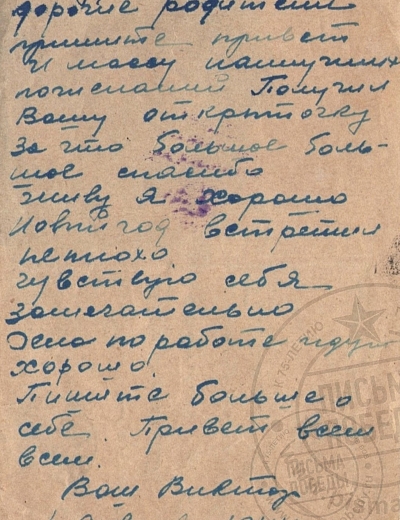 дорогие родители
примите привет
и массу наилучших
пожеланий Получил
Вашу открыточку
За что большое боль-
шое спасибо
Живу я хорошо
Новый год встретил
неплохо
чувствую себя
замечательно
Дела по работе идут
хорошо.
Пишите больше о
себе. Привет всем
всем.
Ваш Виктор
ПИСЬМА
ПОБЕДЫ
ПИСЬМА
ПОБЕДЫ